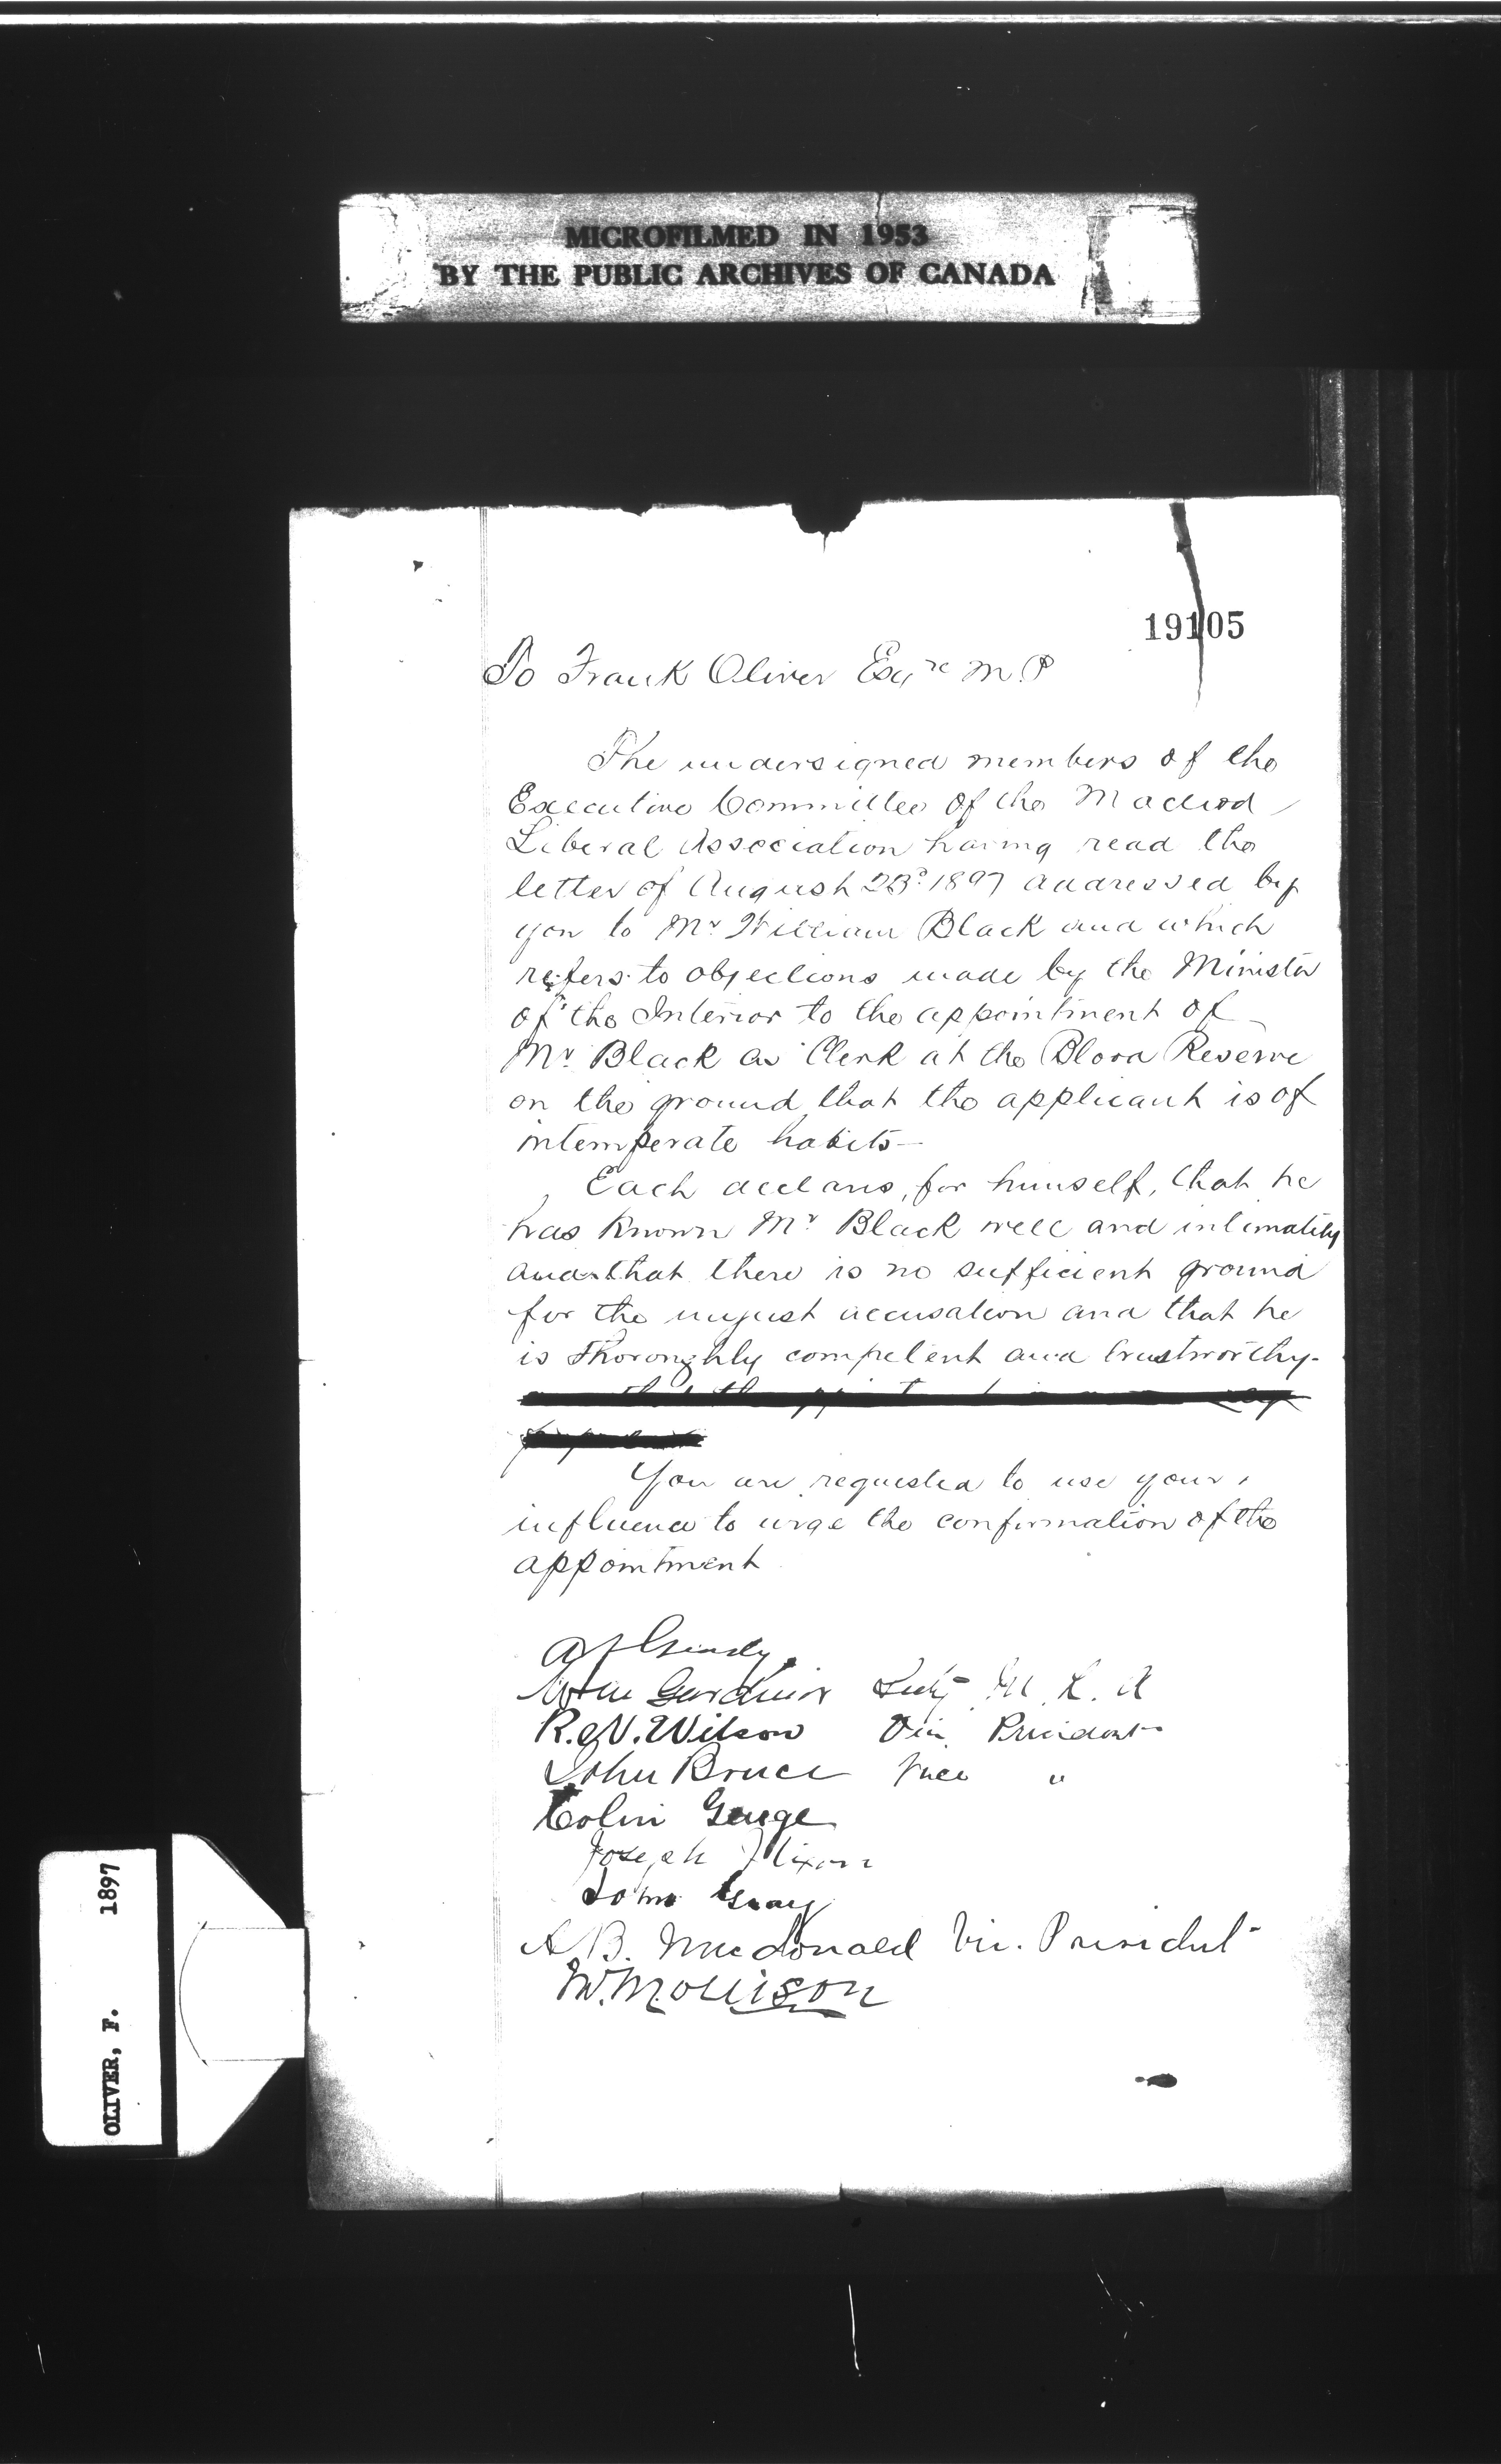 MICROFILMED IN 1953
BY THE PUBLIC ARCHIVES OF CANADA
19105
To Frank Oliver Esqre M.P
The undersigned members of the
Executive Committee of the Macleod
Liberal Association having read the
letter of August 23d. 1897 addressed by
you to Mr William Black and which
refers to objections made by the Minister
of the Interior to the appointment of
Mr Black as Clerk at the Blood Reserve
on the ground that the applicant is of
intemperate habits—
Each declares, for himself, that he
has known Mr Black well and intimately
and that there is no sufficient ground
for the unjust accusation and that he
is thoroughly competent and trustworthy.
You are requested to use your
influence to urge the confirmation of the
appointment
Wm Gardiner Secty M. L. A
R. N. Wilson Vice President
John Bruce Vice "
Colin Genge
Joseph Nixon
John Gray
A B. Macdonald Vic. President
M. Morrison
OLIVER, F. 1897